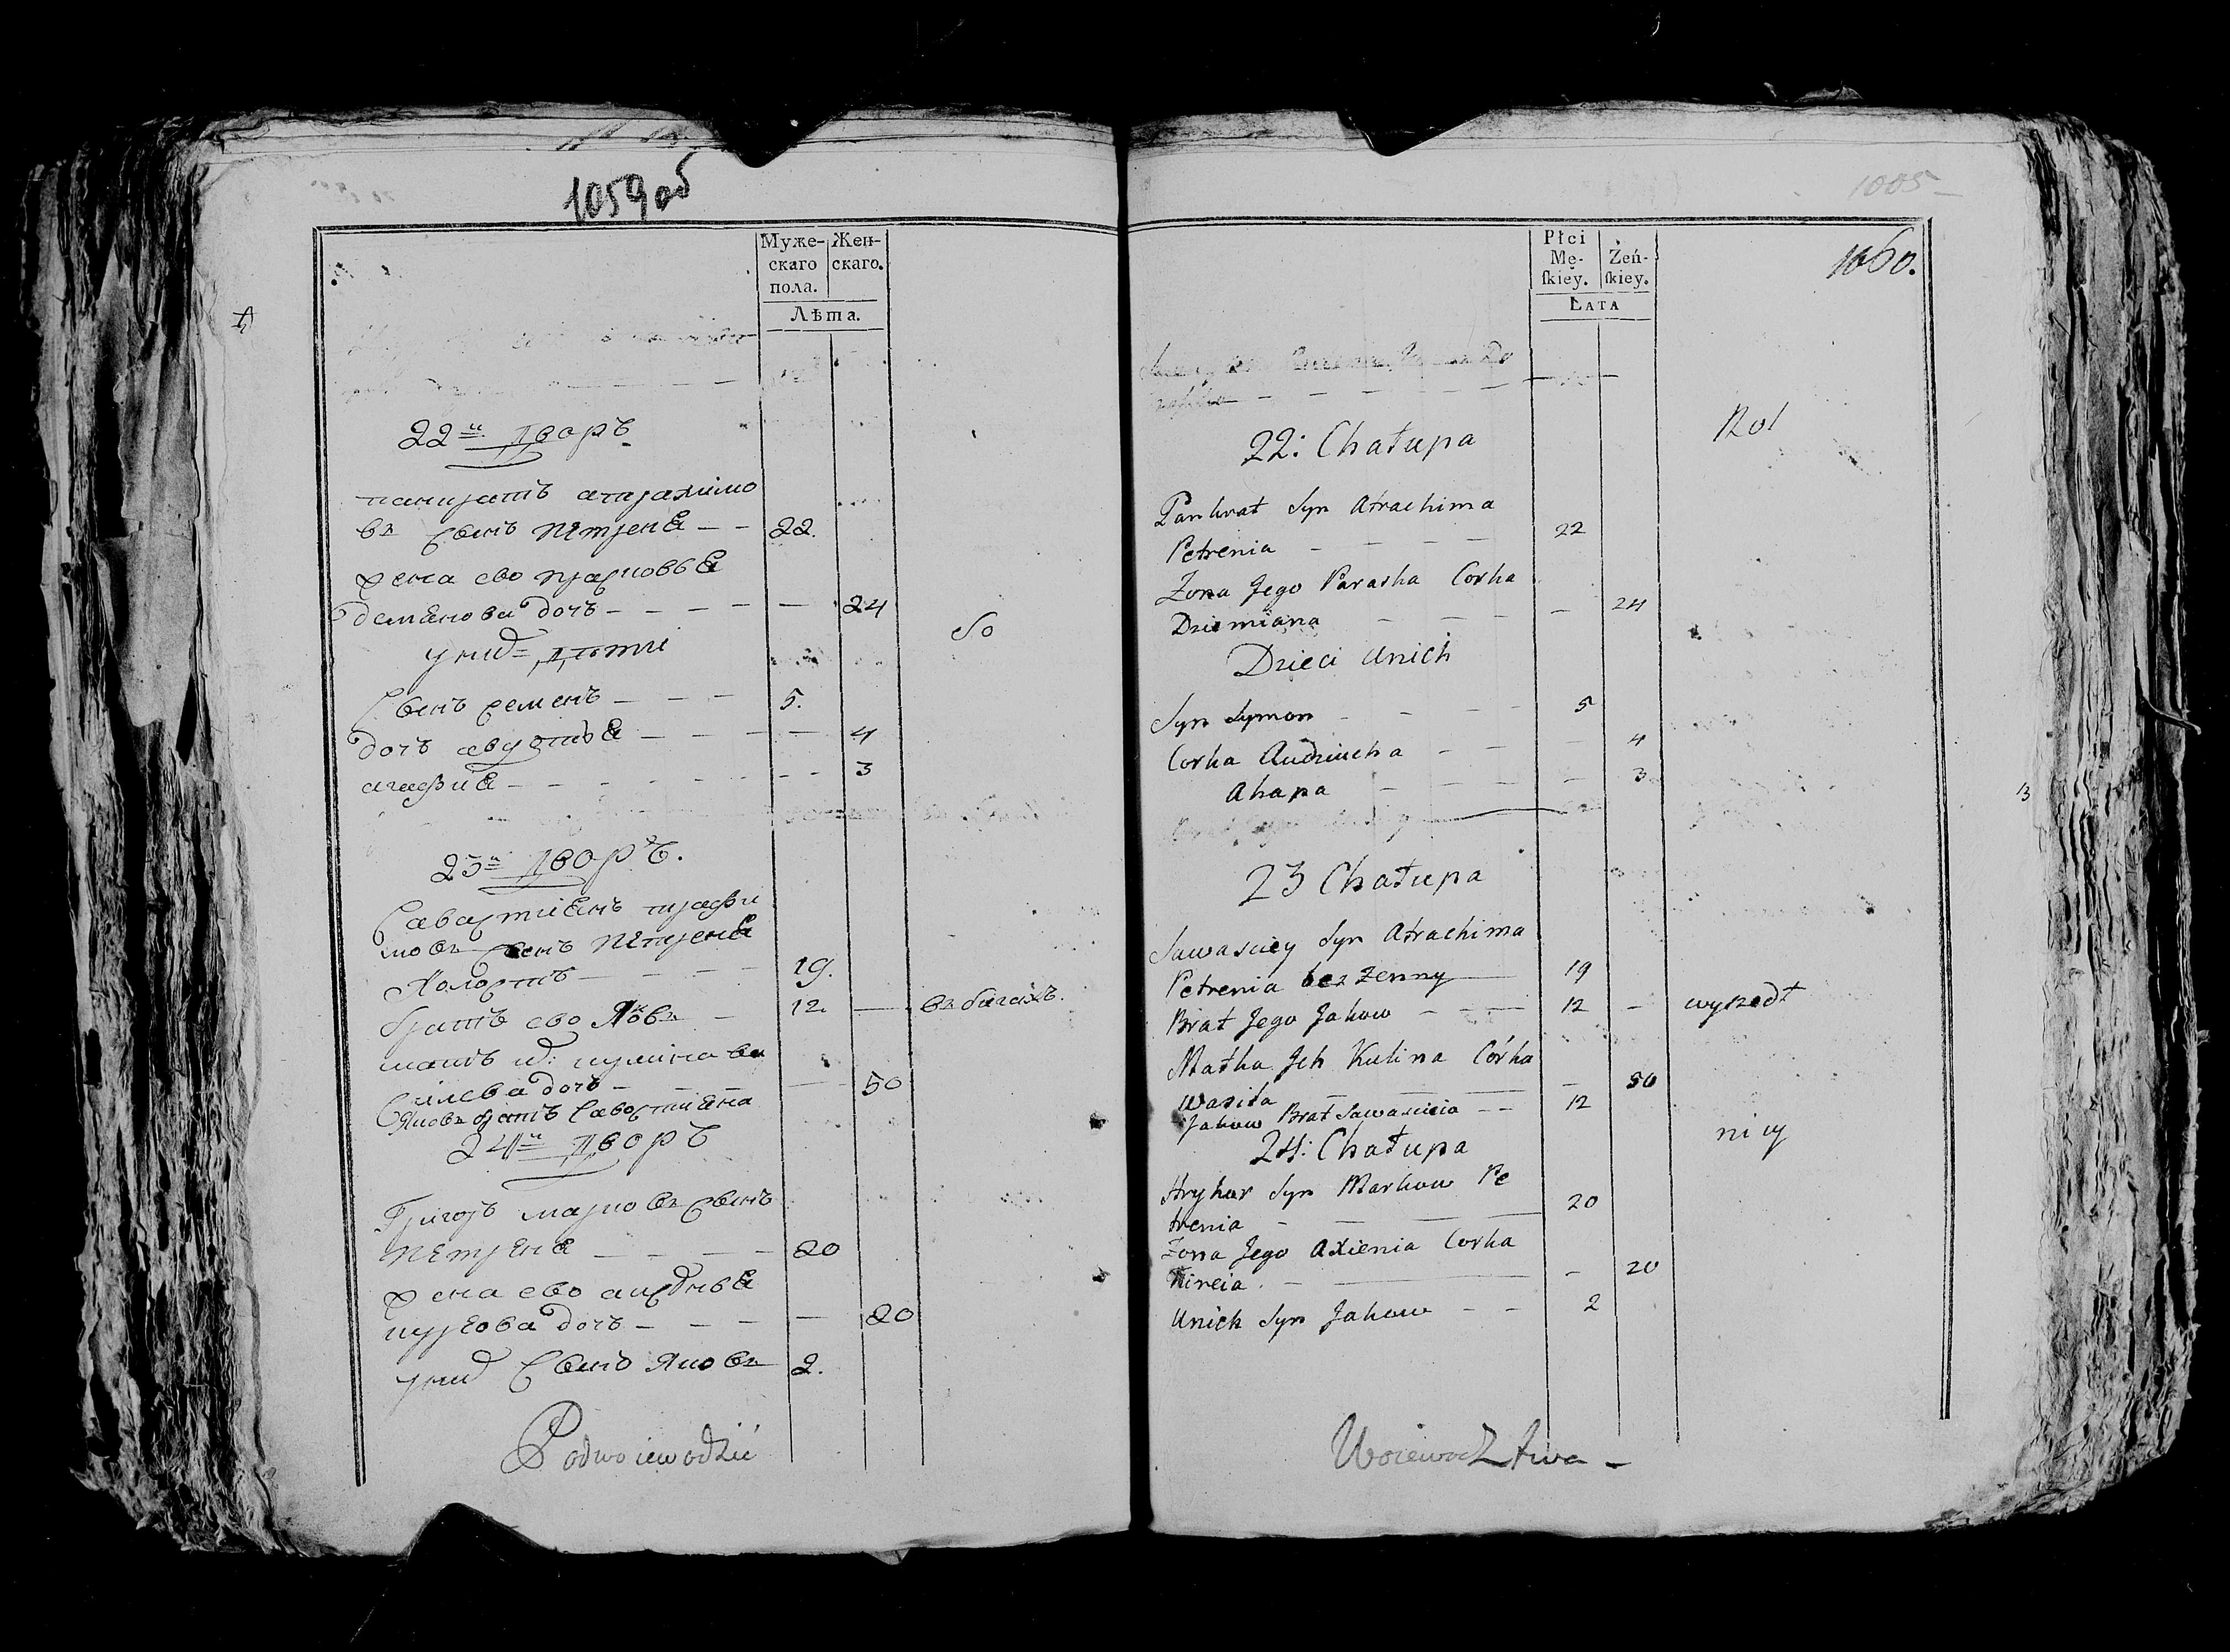 1059об
Муже-
скаго
пола.
Жен-
скаго.
Лѣта.
22й Дворъ
панкратъ атрахимо
въ сынъ петреня — — 22.
жена ево прасковья
демянова дочь — — — — — 24
у них дѣти
So
сынъ семенъ — — — 5.
дочь авдотья — — — — — 4
агафия — — — — — — — 3
23й Дворъ.
Савастиянъ трафи
мовъ сынъ петреня
холостъ — — — 19.
братъ ево Яковъ — 12. — въ бегахъ.
мать их: кулина ва
силева дочь — — — — 50
Яковъ братъ Савостияна
24й Дворъ
Григоръ марковъ сынъ
петреня — — — — 20
жена ево
дочь — — — — 20
у них сынъ Яковъ 2.
Podwoiewodzić
1005
1060.
Płci
Mę-
ſkiey.
Żeń-
ſkiey.
Lata
22: Chałupa
Rol
Pankrat Syn Atrachima
Petrenia — — — — 22
Zona Jego Paraska Corka
Dziemiana — — — — 24
Dzieci Unich
Syn Symon — — — — 5
Corka Audziucha — — — 4
Ahapa — — — — 3
23 Chałupa
Sawasciey Syn Atrachima
Petrenia bez Zenny — 19
Brat Jego Jakow — — — 12 — wyszedł
Matka Jch Kulina Córka
Wasila — — — — 50
Jakow Brat Sawascieia — — 12
24: Chałupa
nicy
Hryhor Syn Markow Pe
trenia — — — 20
Zona Jego Axienia Corka
Kireia — — — 20
Unich Syn Jakow — — 2
Woiewodztwa —